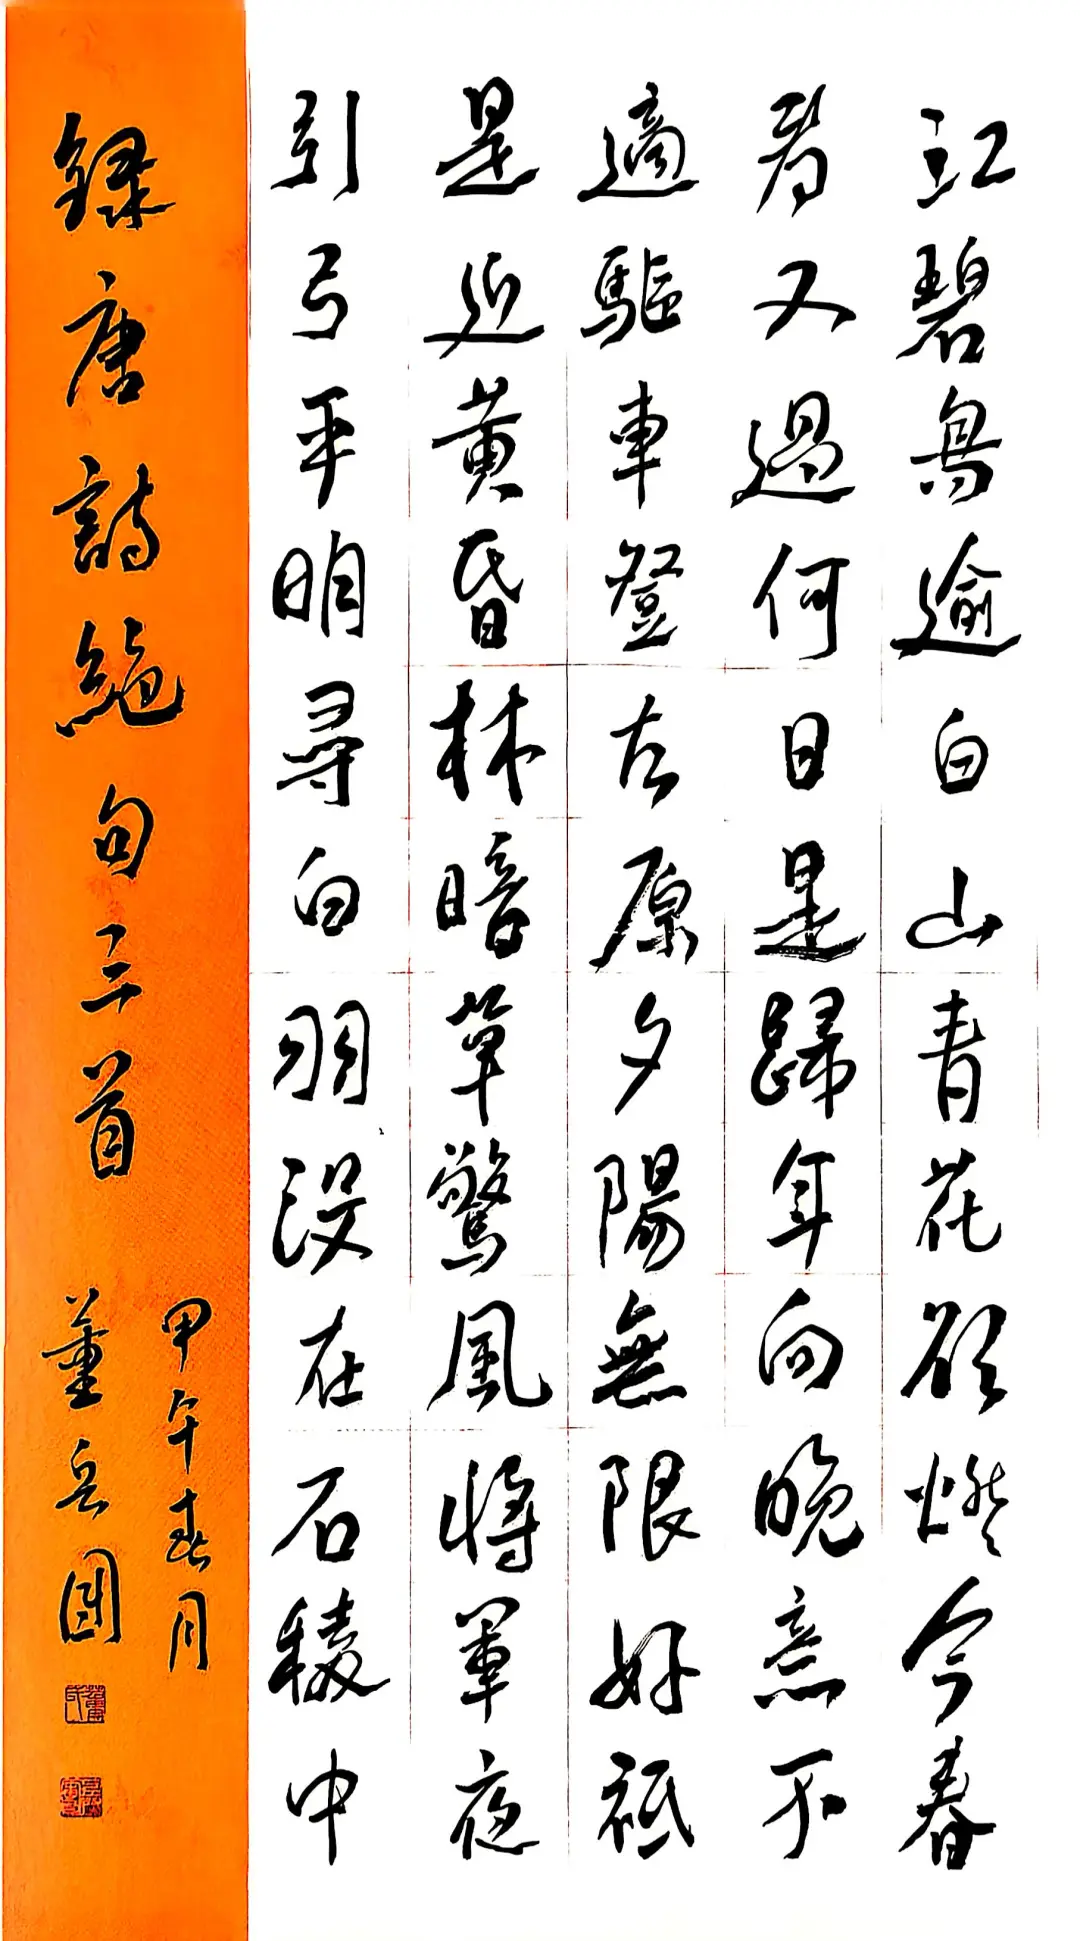 江碧鳥逾白山青花欲燃今春
看又過何日是歸年向晚意不
適驅車登古原夕陽無限好祗
是近黄昏林暗草驚風將軍夜
引弓平明尋白羽没在石稜中
録唐詩絶句三首
甲午春月
董